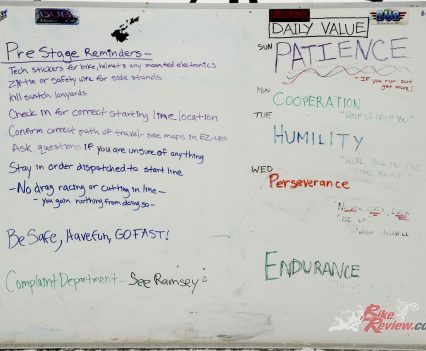 Pre Stage Reminders-
Tech stickers for bike, helmet & any mounted electronics
Ziptie or safety wire for side stands
Kill switch lanyards
Check in for correct starting line location
Confirm correct path of travel - see maps in EZ-ups
Ask questions if you are unsure of anything
Stay in order dispatched to start line
-No drag racing or cutting in line-
-you gain nothing from doing so-
Be Safe, Have fun, GO FAST!
Complaint Department - See Ramsey
DAILY VALUE
SUN PATIENCE
-If you run out get more!
MON COOPERATION
"Help us help you"
TUE
HUMILITY
"We're all in the same boat"
WED
Perseverance
ENDURANCE
Bike
Review.co